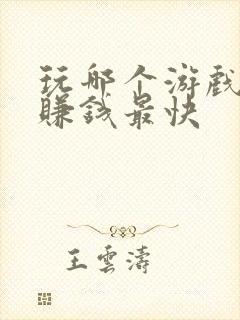 玩哪个游戏
賺钱最快
王雲濤